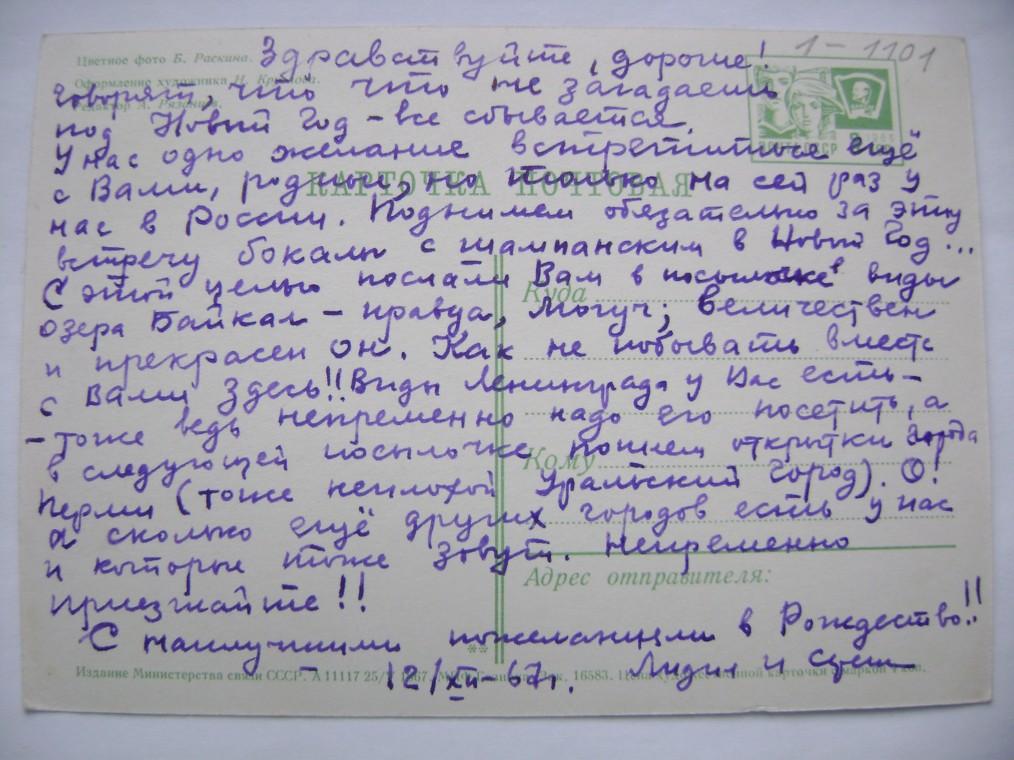 1-1101
Цветное фото Б. Раскина.
Оформление художника
А. Рязанцев.
ПОЧТА СССР
Здравствуйте, дорогие!
Говорят, что что не загадаешь
под Новый Год - все сбывается.
У нас одно желание встретиться ещё
с Вами, родные, но только на сей раз у
КАРТОЧКА ПОЧТОВАЯ
нас в России. Поднимем обязательно за эту
встречу бокалы с шампанским в Новый Год...
С этой целью послали Вам в посылочке виды
Куда
озера Байкал - правда, могуч; величествен
и прекрасен он. Как не побывать вместе
с Вами здесь!! Виды Ленинграда у Вас есть -
- тоже ведь непременно надо его посетить, а
в следующей посылочке пошлем открытки города
Кому
Перми (тоже неплохой Уральский Город). О!
а сколько ещё других городов есть у нас
и которые тоже зовут. Непременно
Адрес отправителя:
приезжайте!!
С наилучшими пожеланиями в Рождество!!
Издание Министерства связи СССР. А 11117 25/ 1967. 16583. художественной карточки с маркой 4 коп.
12/XII-67г. Лидия и